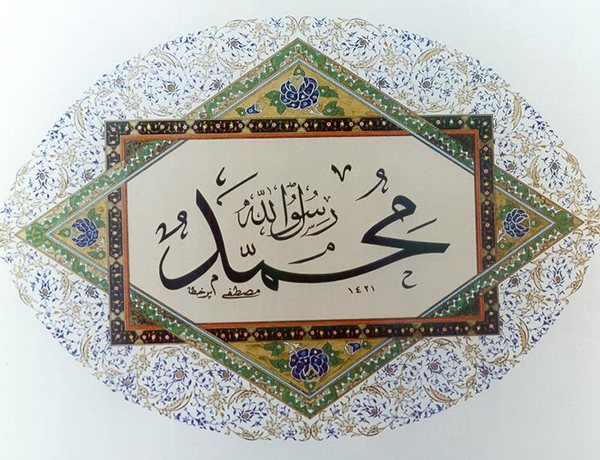 محمد
رسول الله
١٤٢١
مصطفے